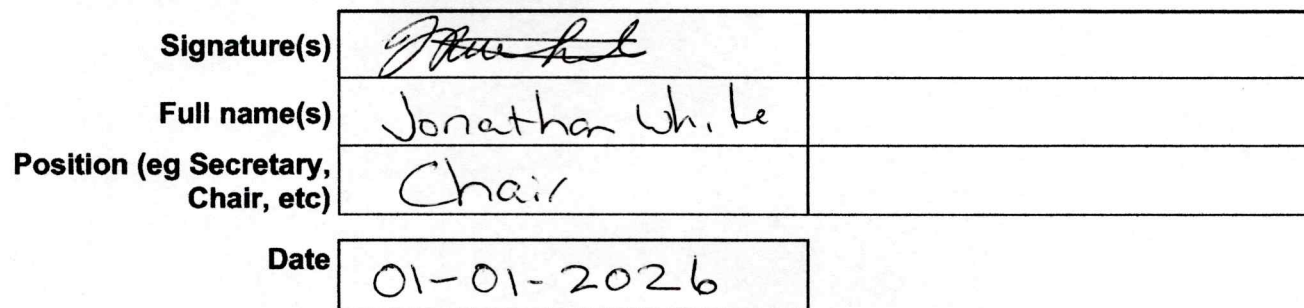 Signature(s)
Full name(s) Jonathan White
Position (eg Secretary,
Chair, etc) Chair
Date 01-01-2026